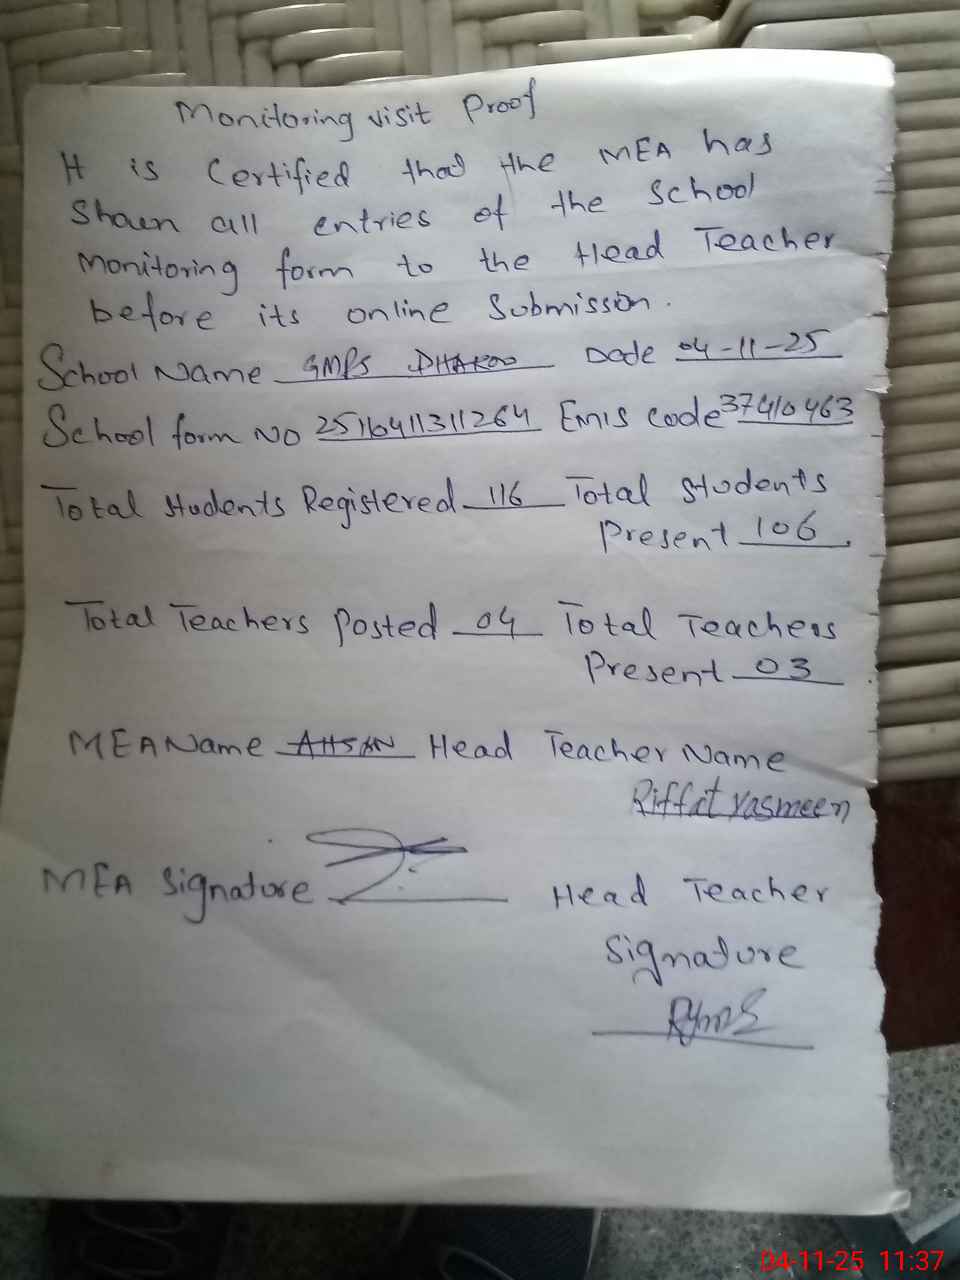 Monitoring visit Proof
It is Certified that the MEA has
Shaen all entries of the School
Monitoring form to the Head Teacher
before its online Submission.
School Name GMPS DHAKOO Date 04-11-25
School form No 25116411311264 Emis code 37410463
Total Students Registered 116 Total Students
Present 106
Total Teachers Posted 04 Total Teachers
Present 03
MEA Name AHSAN Head Teacher Name
Riffat Yasmeen
MEA Signature Head Teacher
Signature
04-11-25 11:37